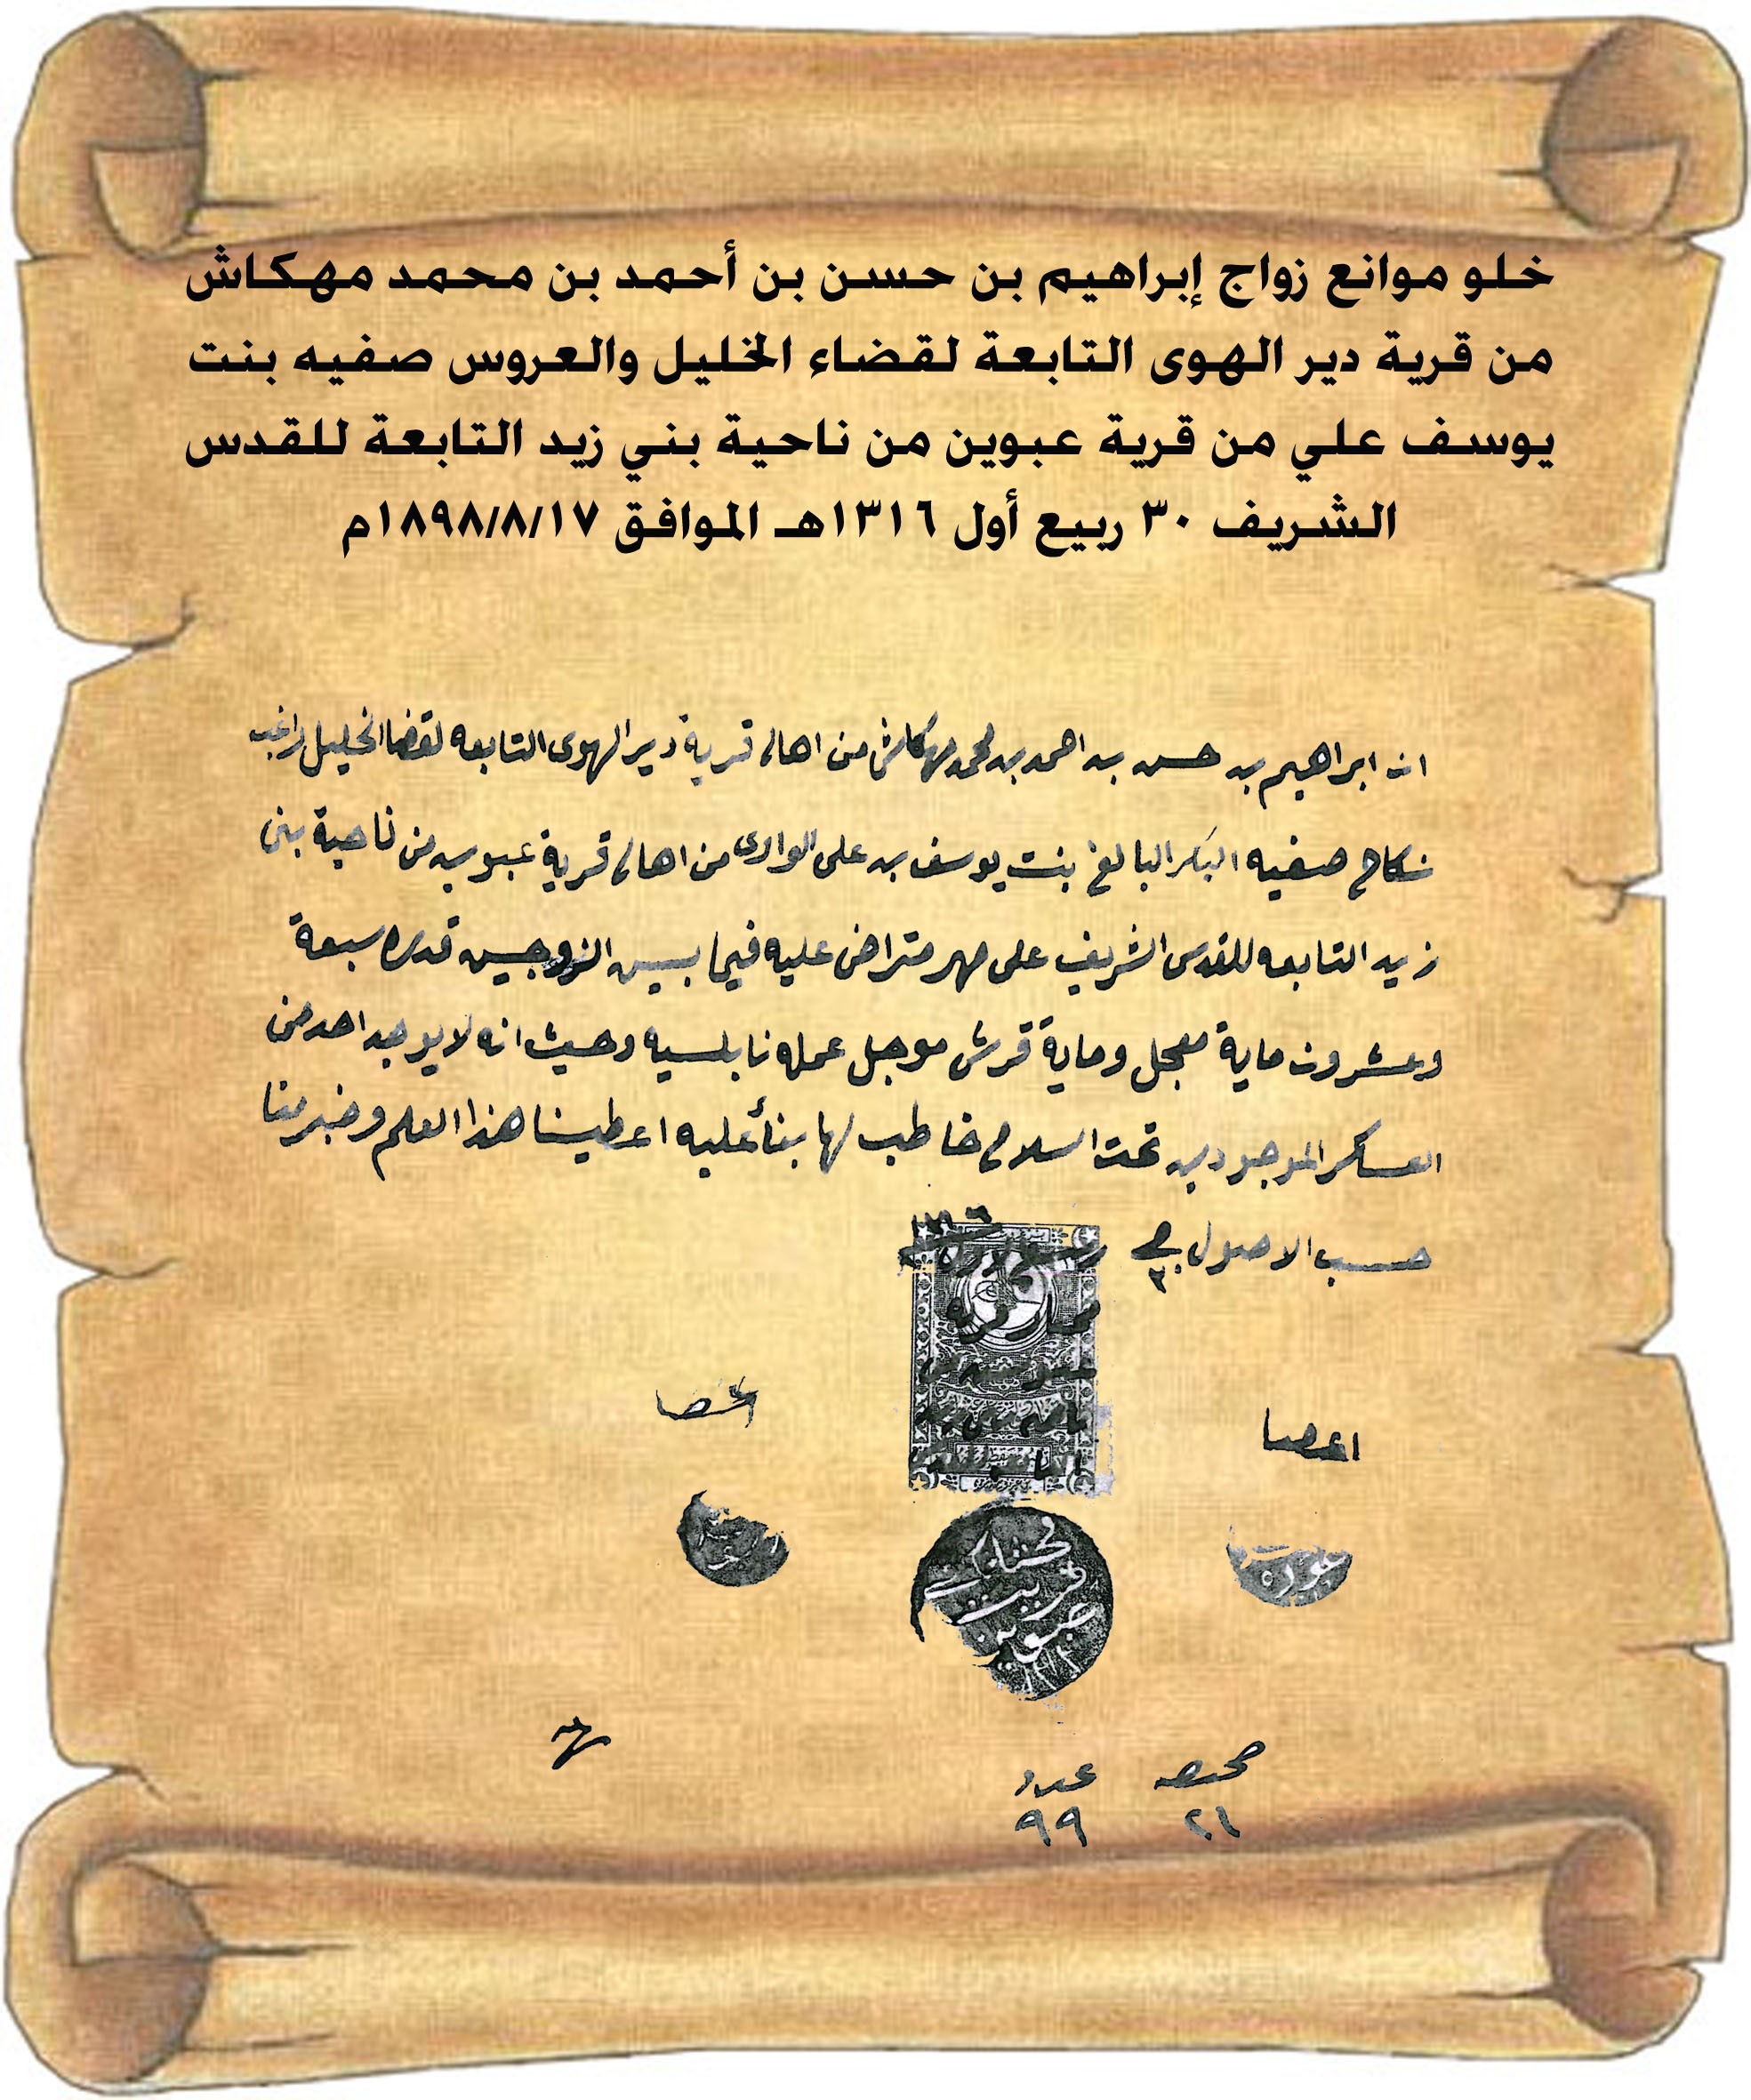 خلو موانع زواج إبراهيم بن حسن بن أحمد بن محمد مهكاش
من قرية دير الهوى التابعة لقضاء الخليل والعروس صفيه بنت
يوسف علي من قرية عبوين من ناحية بني زيد التابعة للقدس
الشريف ٣٠ ربيع أول ١٣١٦هـ الموافق ١٨٩٨/٨/١٧م
ان ابراهيم بن حسن بن احمد بن محمد مهكاش من اهالى قرية دير الهوى التابعه لقضا الخليل راغب
نكاح صفيه البكر البالغ بنت يوسف بن على الوادى من اهالى قرية عبوين من ناحية بنى
زيد التابعه للقدس الشريف على مهر متراضى عليه فيما بين الزوجين قدره سبعة
وعشرون ماية معجل وماية قرش موجل عمله نابلسيه وحيث انه لا يوجد احد من
العسكر الموجودين تحت السلاح خاطب لها بنأ عليه اعطينا هذا العلم وخبر منا
حسب الاصول
اعضا
اعضا
قريت
عبوين
عدد
٩٩
٢١